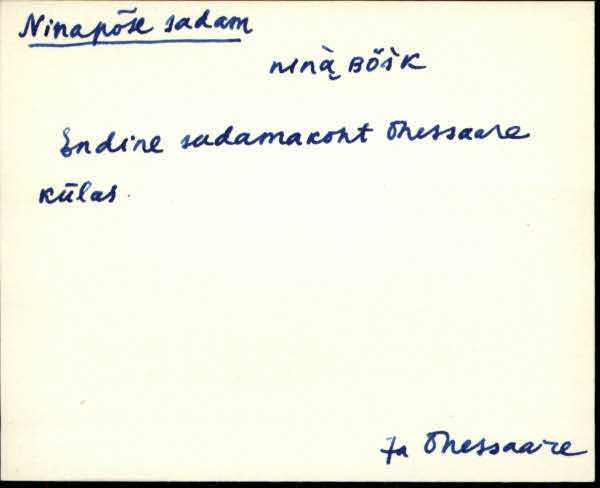 Ninapõse sadam
ninà̭ ʙõ̀s̀ᴋ
Endine sadamakoht Ohessaare
külas.
Ja Ohessaare